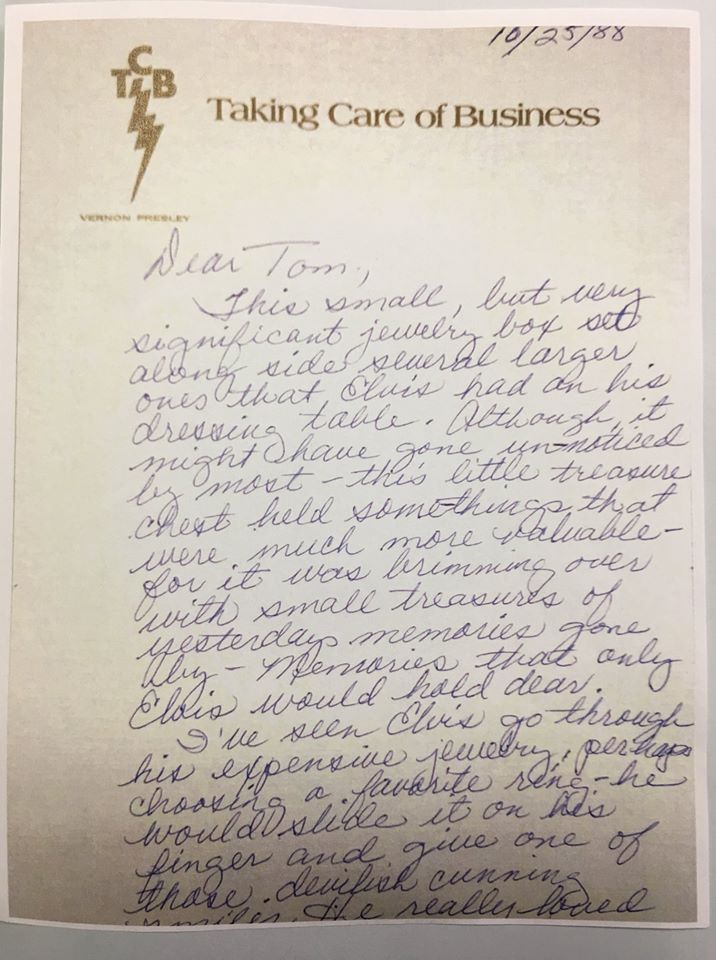 10/25/88
TCB
Taking Care of Business
VERNON PRESLEY
Dear Tom,
This small, but very
significant jewelry box set
along side several larger
ones that Elvis had on his
dressing table. Although it
might have gone un-noticed
by most - this little treasure
chest held somethings that
were much more valuable -
for it was brimming over
with small treasures of
yesterdays memories gone
by - Memories that only
Elvis would hold dear.
I've seen Elvis go through
his expensive jewelry, perhaps
choosing a favorite ring - he
would slide it on his
finger and give one of
those devilish cunning
smiles. He really loved